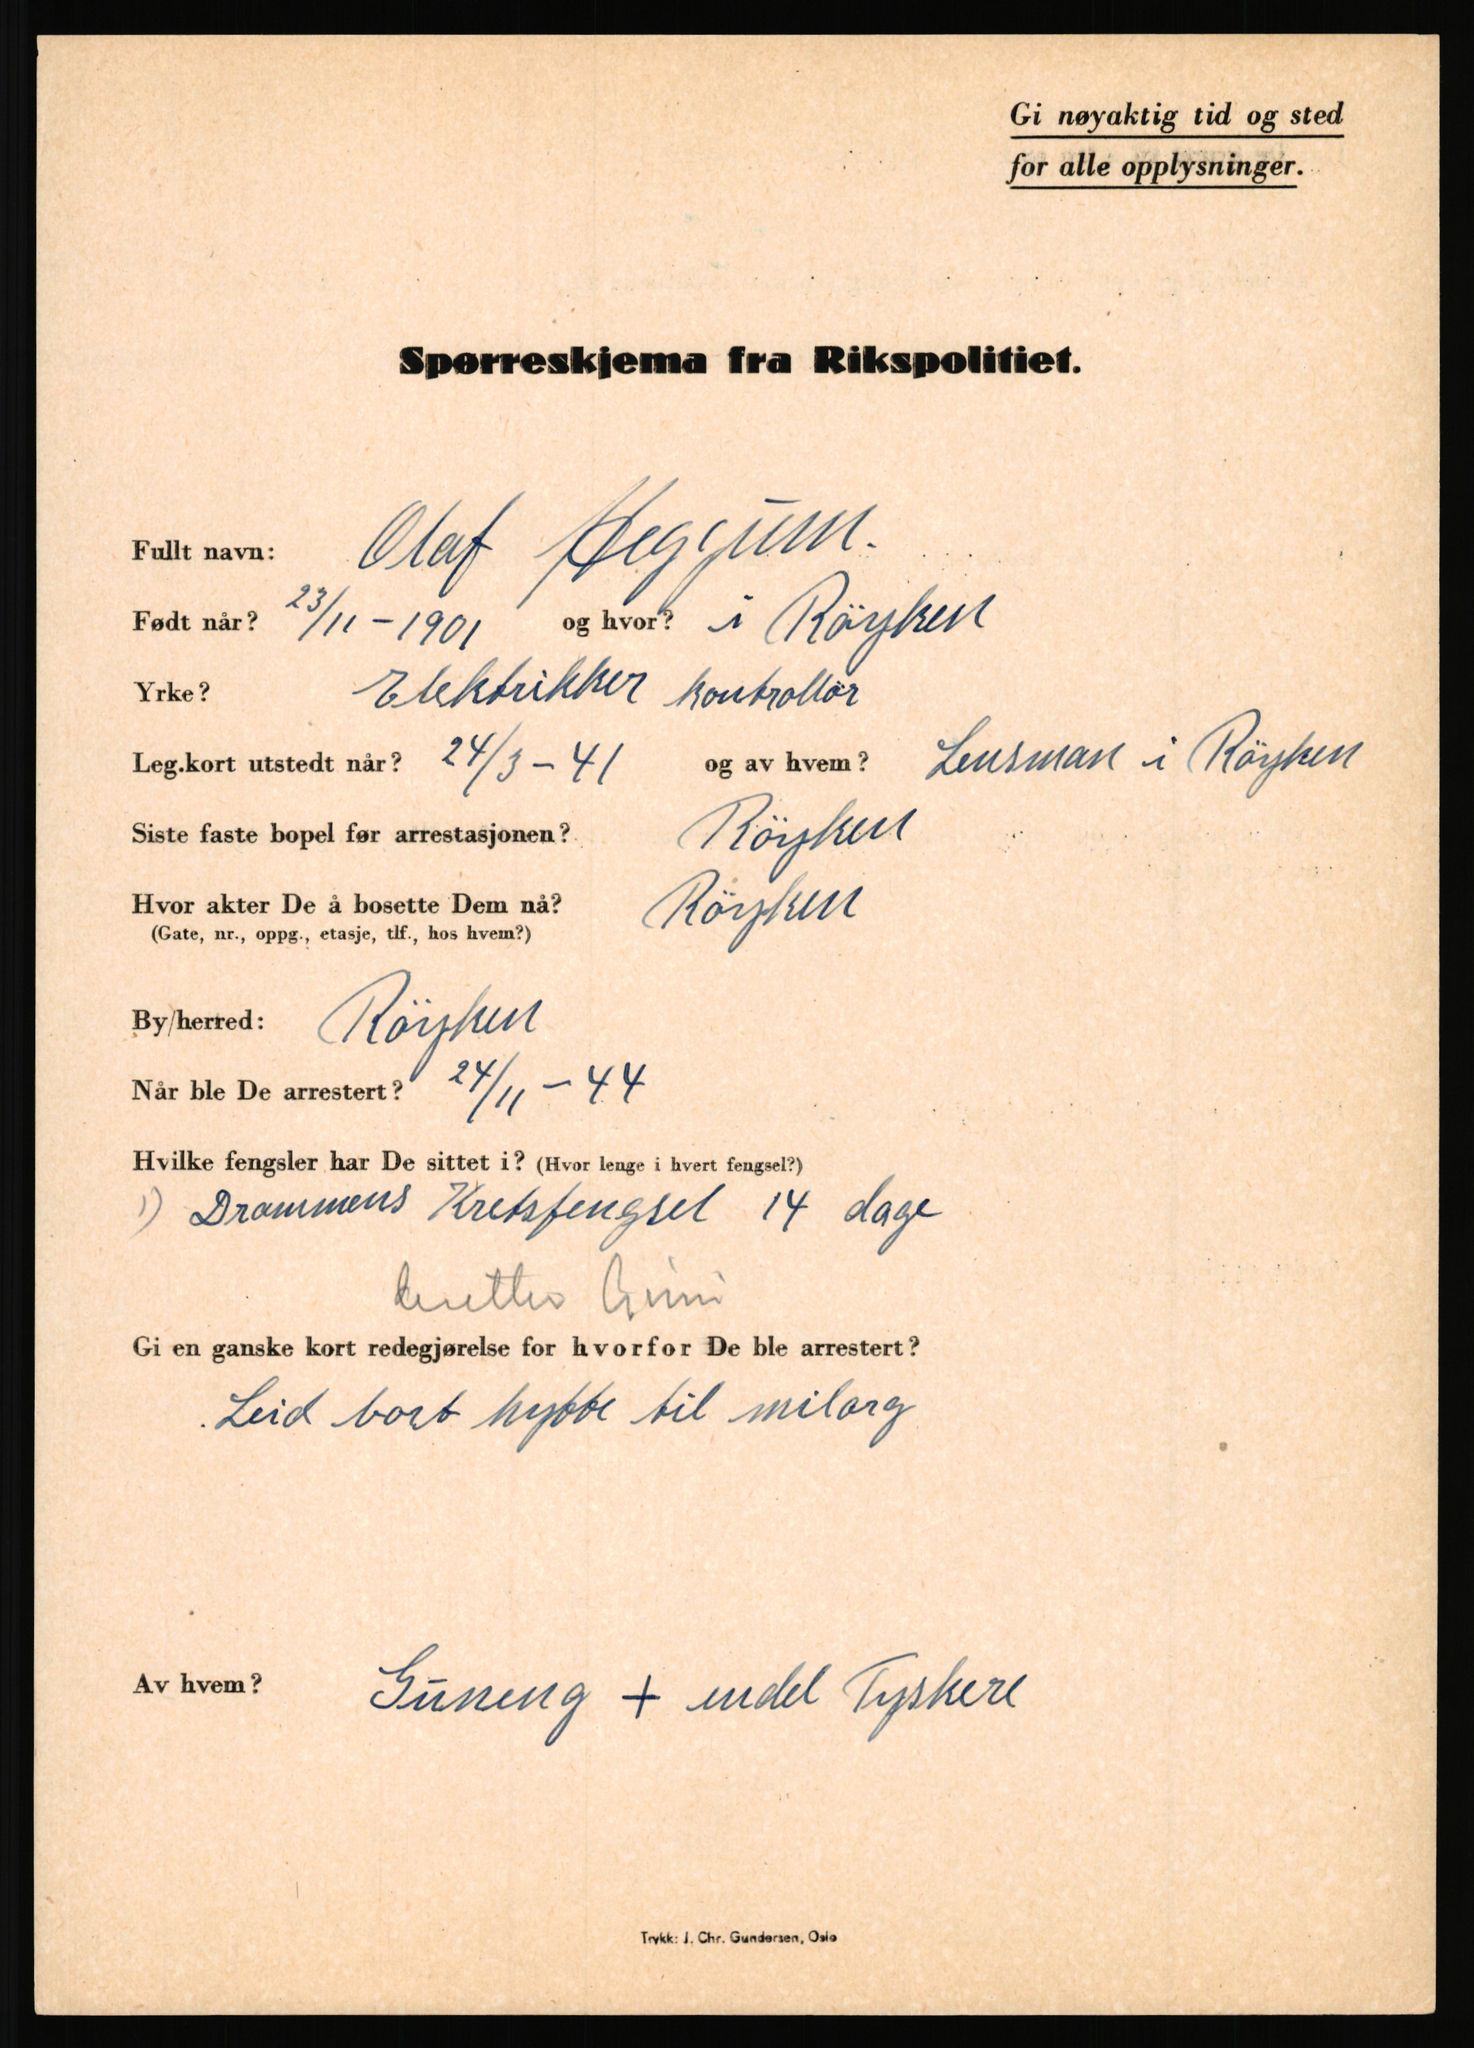 Gi nøyaktig tid og sted
for alle opplysninger.
Spørreskjema fra Rikspolitiet.
Fullt navn: Olaf Heggum.
Født når? 23/11 – 1901 og hvor? i Röyken
Yrke? Elektrikker kontrollör
Leg.kort utstedt når? 24/3 – 41 og av hvem? Lensman i Röyken
Siste faste bopel før arrestasjonen? Röyken
Hvor akter De å bosette Dem nå? Röyken
(Gate, nr., oppg., etasje, tlf., hos hvem?)
By/herred: Röyken
Når ble De arrestert? 24/11 – 44
Hvilke fengsler har De sittet i? (Hvor lenge i hvert fengsel?)
1) Drammens Kretsfengsel 14 dage
Grini
Gi en ganske kort redegjørelse for hvorfor De ble arrestert?
Leid bort hytte til milorg
Av hvem? Guneng + endel Tyskere
Trykk: J. Chr. Gundersen, Oslo